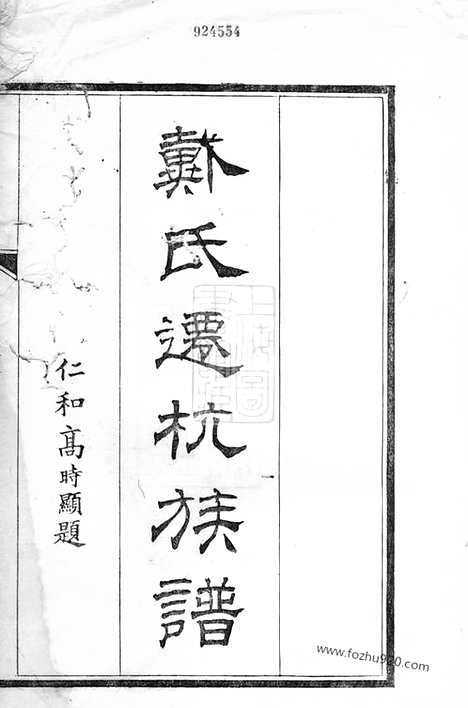 924554
戴氏遷杭族譜
仁和高時顯題
www.fozhu920.com